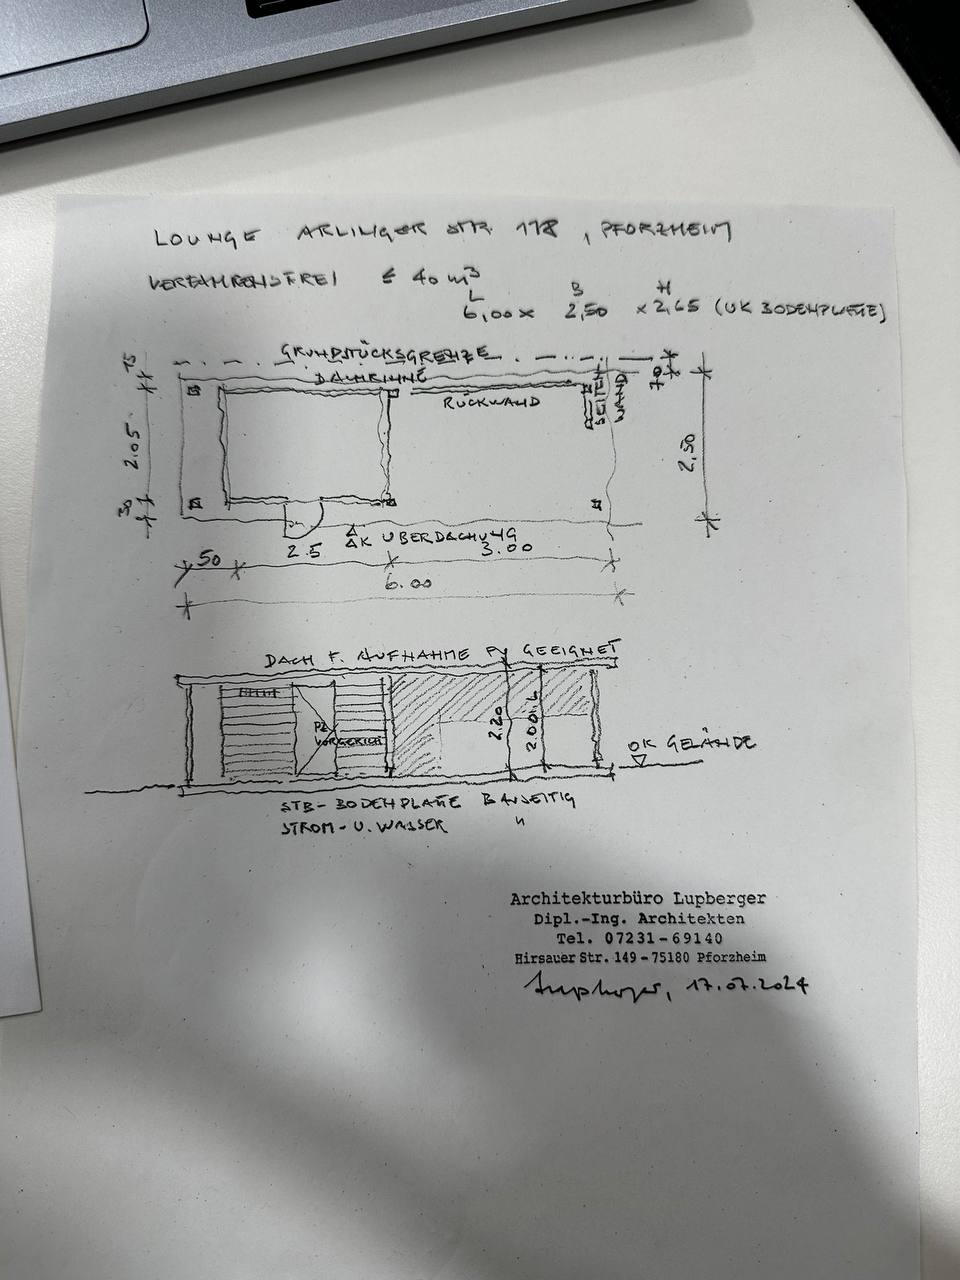 LOUNGE ARLINGER STR. 178, PFORZHEIM
VERFAHRENSFREI ≤ 40 m³
L B H
6,00 x 2,50 x 2,65 (UK BODENPLATTE)
GRUNDSTÜCKSGRENZE
DACHRINNE
RÜCKWAND
SEITEN
WAND
15
2.05
30
70
2,50
2.5
AK ÜBERDACHUNG
50
3.00
6.00
DACH F. AUFNAHME PV GEEIGNET
VORGERICH
2.20
OK GELÄNDE
STB-BODENPLATTE BAUSEITIG
STROM- U. WASSER "
Architekturbüro Lupberger
Dipl.-Ing. Architekten
Tel. 07231-69140
Hirsauer Str. 149-75180 Pforzheim
17.07.2024